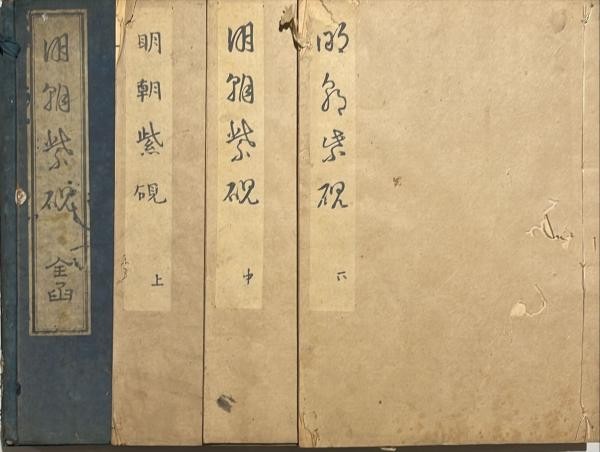 明朝紫硯 全函
明朝紫硯 上
明朝紫硯 中
明朝紫硯 下